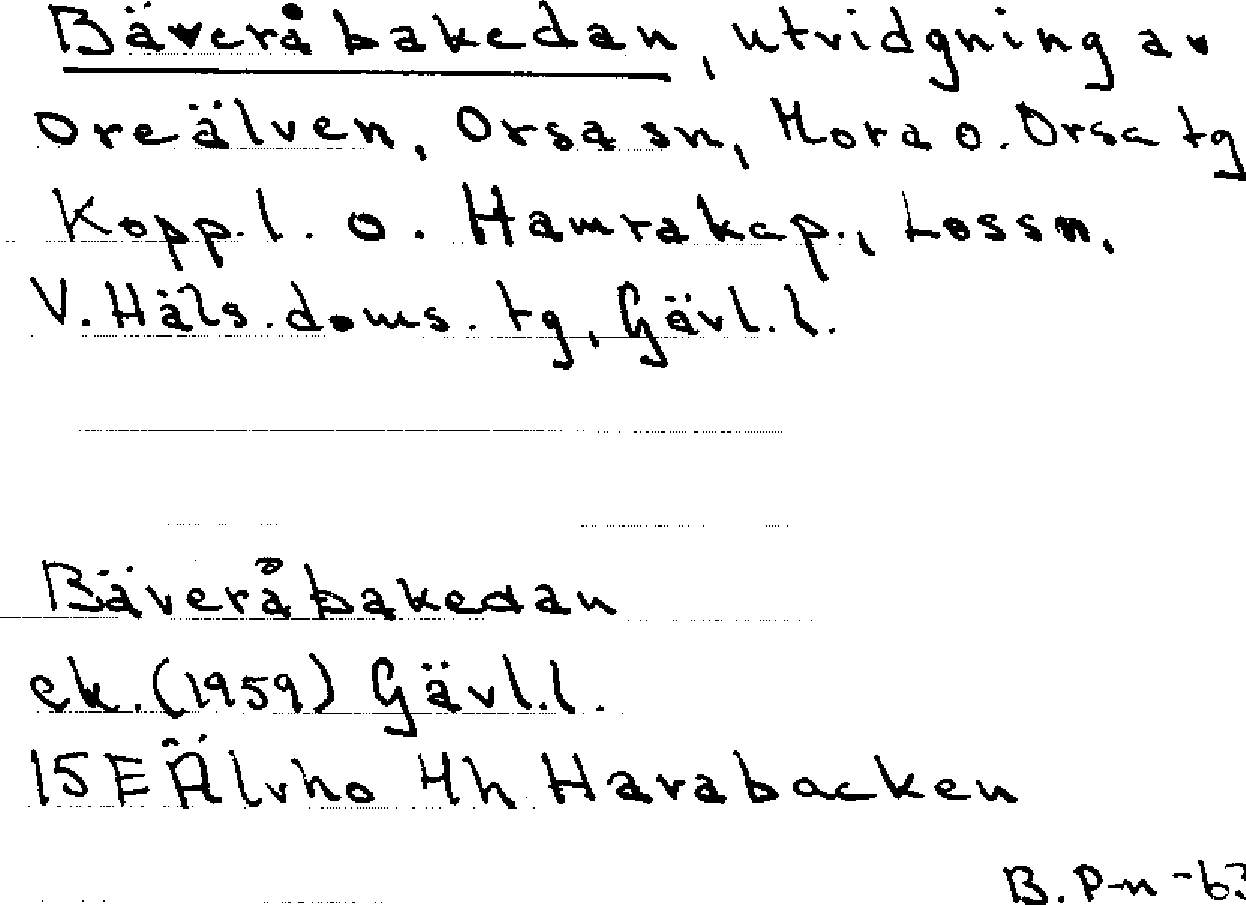 Bäveråbakedan, utvidgning av
Oreälven, Orsa sn, Mora o. Orsa tg
Kopp. l. o. Hamra kap., Los sn,
V. Häls. doms. tg, Gävl. l.
Bäveråbakedan
ek. (1959) Gävl. l.
15 E Älvho 4h Harabacken
B. P-n -63